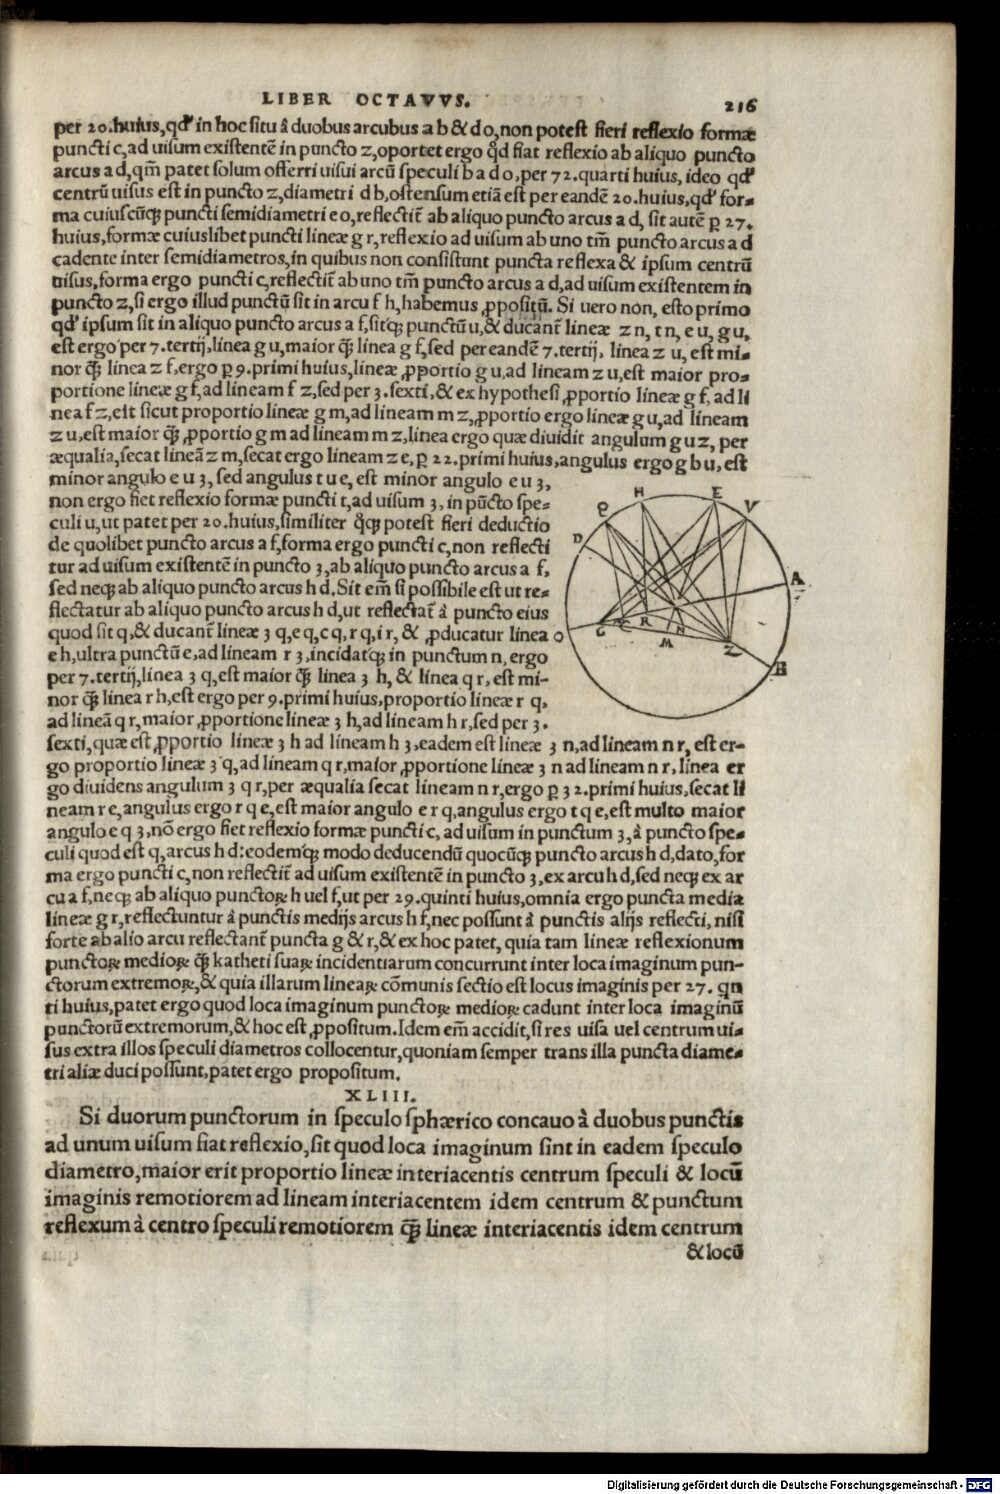 LIBER OCTAVVS. 216
per 20.huius,qđ in hoc situ à duobus arcubus a b & d o, non potest fieri reflexio formæ
puncti c, ad uisum existentẽ in puncto z, oportet ergo qđ fiat reflexio ab aliquo puncto
arcus a d, qm̃ patet solum offerri uisui arcũ speculi b a d o, per 72. quarti huius, ideo qđ
centrũ uisus est in puncto z, diametri d b, ostensum etiã est per eandẽ 20. huius, qđ for=
ma cuiuscũq; puncti semidiametri e o, reflectit̃ ab aliquo puncto arcus a d, sit autẽ ꝑ 27.
huius, formæ cuiuslibet puncti lineæ g r, reflexio ad uisum ab uno tm̃ puncto arcus a d
cadente inter semidiametros, in quibus non consistunt puncta reflexa & ipsum centrũ
uisus, forma ergo puncti c, reflectit̃ ab uno tm̃ puncto arcus a d, ad uisum existentem in
puncto z, si ergo illud punctũ sit in arcu f h, habemus ꝓpositũ. Si uero non, esto primo
qđ ipsum sit in aliquo puncto arcus a f, sitq; punctũ u, & ducant̃ lineæ z n, t n, e u, g u,
est ergo per 7. tertij, linea g u, maior q̃ linea g f, sed per eandẽ 7. tertij, linea z u, est mi=
nor q̃ linea z f, ergo ꝑ 9. primi huius, lineæ ꝓportio g u, ad lineam z u, est maior pro=
portione lineæ g f, ad lineam f z, sed per 3. sexti, & ex hypothesi ꝓportio lineæ g f, ad li
nea f z, eit sicut proportio lineæ g m, ad lineam m z, ꝓportio ergo lineæ g u, ad lineam
z u, est maior q̃ ꝓportio g m ad lineam m z, linea ergo quæ diuidit angulum g u z, per
æqualia, secat lineã z m, secat ergo lineam z e, ꝑ 22. primi huius, angulus ergo g b u, est
minor angulo e u 3, sed angulus t u e, est minor angulo e u 3,
non ergo fiet reflexio formæ puncti t, ad uisum 3, in pũcto spe=
culi u, ut patet per 20. huius, similiter q̃q; potest fieri deductio
de quolibet puncto arcus a f, forma ergo puncti c, non reflecti
tur ad uisum existentẽ in puncto 3, ab aliquo puncto arcus a f,
sed neq; ab aliquo puncto arcus h d. Sit em̃ si possibile est ut re=
flectatur ab aliquo puncto arcus h d, ut reflectat̃ à puncto eius
quod sit q, & ducant̃ lineæ 3 q, e q, c q, r q, i r, & ꝓducatur linea
e h, ultra punctũ e, ad lineam r 3, incidatq; in punctum n, ergo
per 7. tertij, linea 3 q, est maior q̃ linea 3 h, & linea q r, est mi-
nor q̃ linea r h, est ergo per 9. primi huius, proportio lineæ r q,
ad lineã q r, maior ꝓportione lineæ 3 h, ad lineam h r, sed per 3.
H E V Q D A G C R N M Z B O
sexti, quæ est ꝓportio lineæ 3 h ad lineam h 3, eadem est lineæ 3 n, ad lineam n r, est er-
go proportio lineæ 3 q, ad lineam q r, maior ꝓportione lineæ 3 n ad lineam n r, linea er
go diuidens angulum 3 q r, per æqualia secat lineam n r, ergo ꝑ 32. primi huius, secat li
neam r e, angulus ergo r q e, est maior angulo e r q, angulus ergo t q e, est multo maior
angulo e q 3, nõ ergo fiet reflexio formæ puncti c, ad uisum in punctum 3, à puncto spe=
culi quod est q, arcus h d: eodemq; modo deducendũ quocũq; puncto arcus h d, dato, for
ma ergo puncti c, non reflectit̃ ad uisum existentẽ in puncto 3, ex arcu h d, sed neq; ex ar
cu a f, neq; ab aliquo punctoꝝ h uel f, ut per 29. quinti huius, omnia ergo puncta media
lineæ g r, reflectuntur à punctis medijs arcus h f, nec possunt à punctis alijs reflecti, nisi
forte ab alio arcu reflectant̃ puncta g & r, & ex hoc patet, quia tam lineæ reflexionum
punctoꝝ medioꝝ q̃ katheti suaꝝ incidentiarum concurrunt inter loca imaginum pun-
ctorum extremoꝝ, & quia illarum lineaꝝ cõmunis sectio est locus imaginis per 27. qn
ti huius, patet ergo quod loca imaginum punctoꝝ medioꝝ cadunt inter loca imaginũ
punctorũ extremorum, & hoc est ꝓpositum. Idem em̃ accidit, si res uisa uel centrum ui=
sus extra illos speculi diametros collocentur, quoniam semper trans illa puncta diame=
tri aliæ duci possunt, patet ergo propositum.
XLIII.
Si duorum punctorum in speculo sphærico concauo à duobus punctis
ad unum uisum fiat reflexio, sit quod loca imaginum sint in eadem speculo
diametro, maior erit proportio lineæ interiacentis centrum speculi & locũ
imaginis remotiorem ad lineam interiacentem idem centrum & punctum
reflexum à centro speculi remotiorem q̃ lineæ interiacentis idem centrum
& locũ
Digitalisierung gefördert durch die Deutsche Forschungsgemeinschaft - DFG